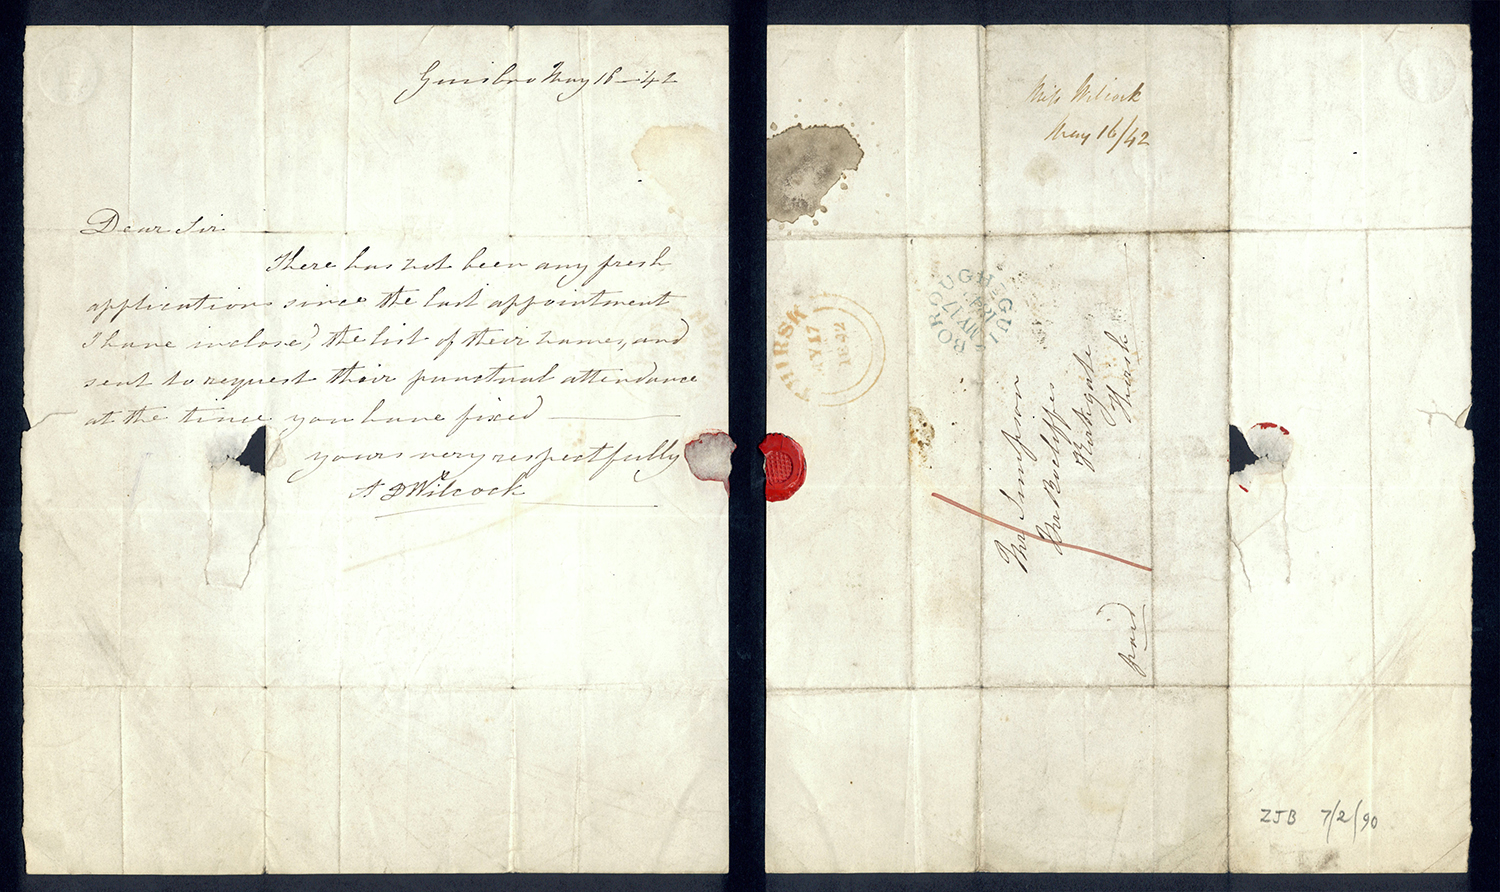 Guisbro May 16 - 42
Dear Sir
There has not been any fresh
applications since the last appointment
I have inclosed the list of their names, and
sent to request their punctual attendance
at the time you have fixed
yours very respectfully
A D Wilcock
Miss Wilcock
May 16/42
THIRSK
MY 17
1842
GUISBOROUGH
MY 17
Thos Simpson
Mr Rocliffes
Kirkgate
Thirsk
paid
ZJB 7/2/90